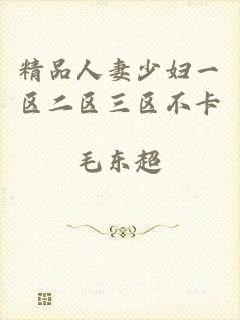 精品人妻少妇一
区二区三区不卡
毛东超